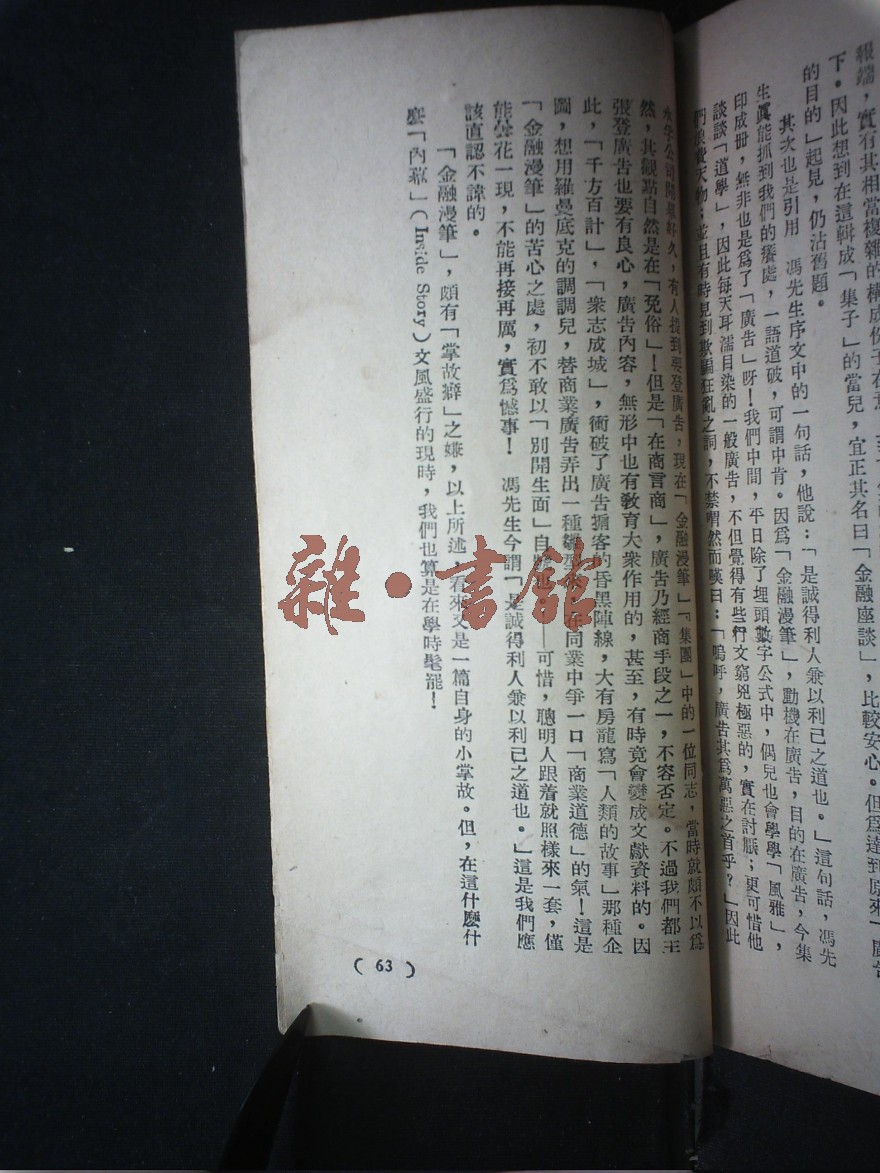 報端，實有其相當複雜的構成份子在
下。因此想到在這輯成「集子」的當兒，宜正其名曰「金融座談」，比較安心。但爲達到原來「廣告
的目的」起見，仍沾舊題。
其次也是引用　馮先生序文中的一句話，他說：「是誠得利人兼以利己之道也。」這句話，馮先
生眞能抓到我們的癢處，一語道破，可謂中肯。因爲「金融漫筆」，動機在廣告，目的在廣告，今集
印成冊，無非也是爲了「廣告」呀！我們中間，平日除了埋頭數字公式中，偶兒也會學學「風雅」，
談談「道學」，因此每天耳濡目染的一般廣告，不但覺得有些行文窮兇極惡的，實在討厭；更可惜他
們浪費天物；並且有時見到欺騙狂亂之詞，不禁喟然而嘆曰：「嗚呼，廣告其爲萬惡之首乎？」因此
公司開業好久，有人提到要登廣告，現在「金融漫筆」「集團」中的一位同志，當時就頗不以爲
然，其觀點自然是在「免俗」！但是「在商言商」，廣告乃經商手段之一，不容否定。不過我們都主
張登廣告也要有良心，廣告內容，無形中也有敎育大衆作用的，甚至，有時竟會變成文獻資料的。因
此，「千方百計」，「衆志成城」，衝破了廣告掮客的昏黑陣線，大有房龍寫「人類的故事」那種企
圖，想用羅曼底克的調調兒，替商業廣告弄出一種型來，在同業中爭一口「商業道德」的氣！這是
「金融漫筆」的苦心之處，初不敢以「別開生面」自也——可惜，聰明人跟着就照樣來一套，僅
能曇花一現，不能再接再厲，實爲憾事！　馮先生今謂「是誠得利人兼以利己之道也。」這是我們應
該直認不諱的。
「金融漫筆」，頗有「掌故癖」之嫌，以上所述，看來又是一篇自身的小掌故。但，在這什麽什
麽「內幕」（Inside Story）文風盛行的現時，我們也算是在學時髦罷！
（63）
雜·書館